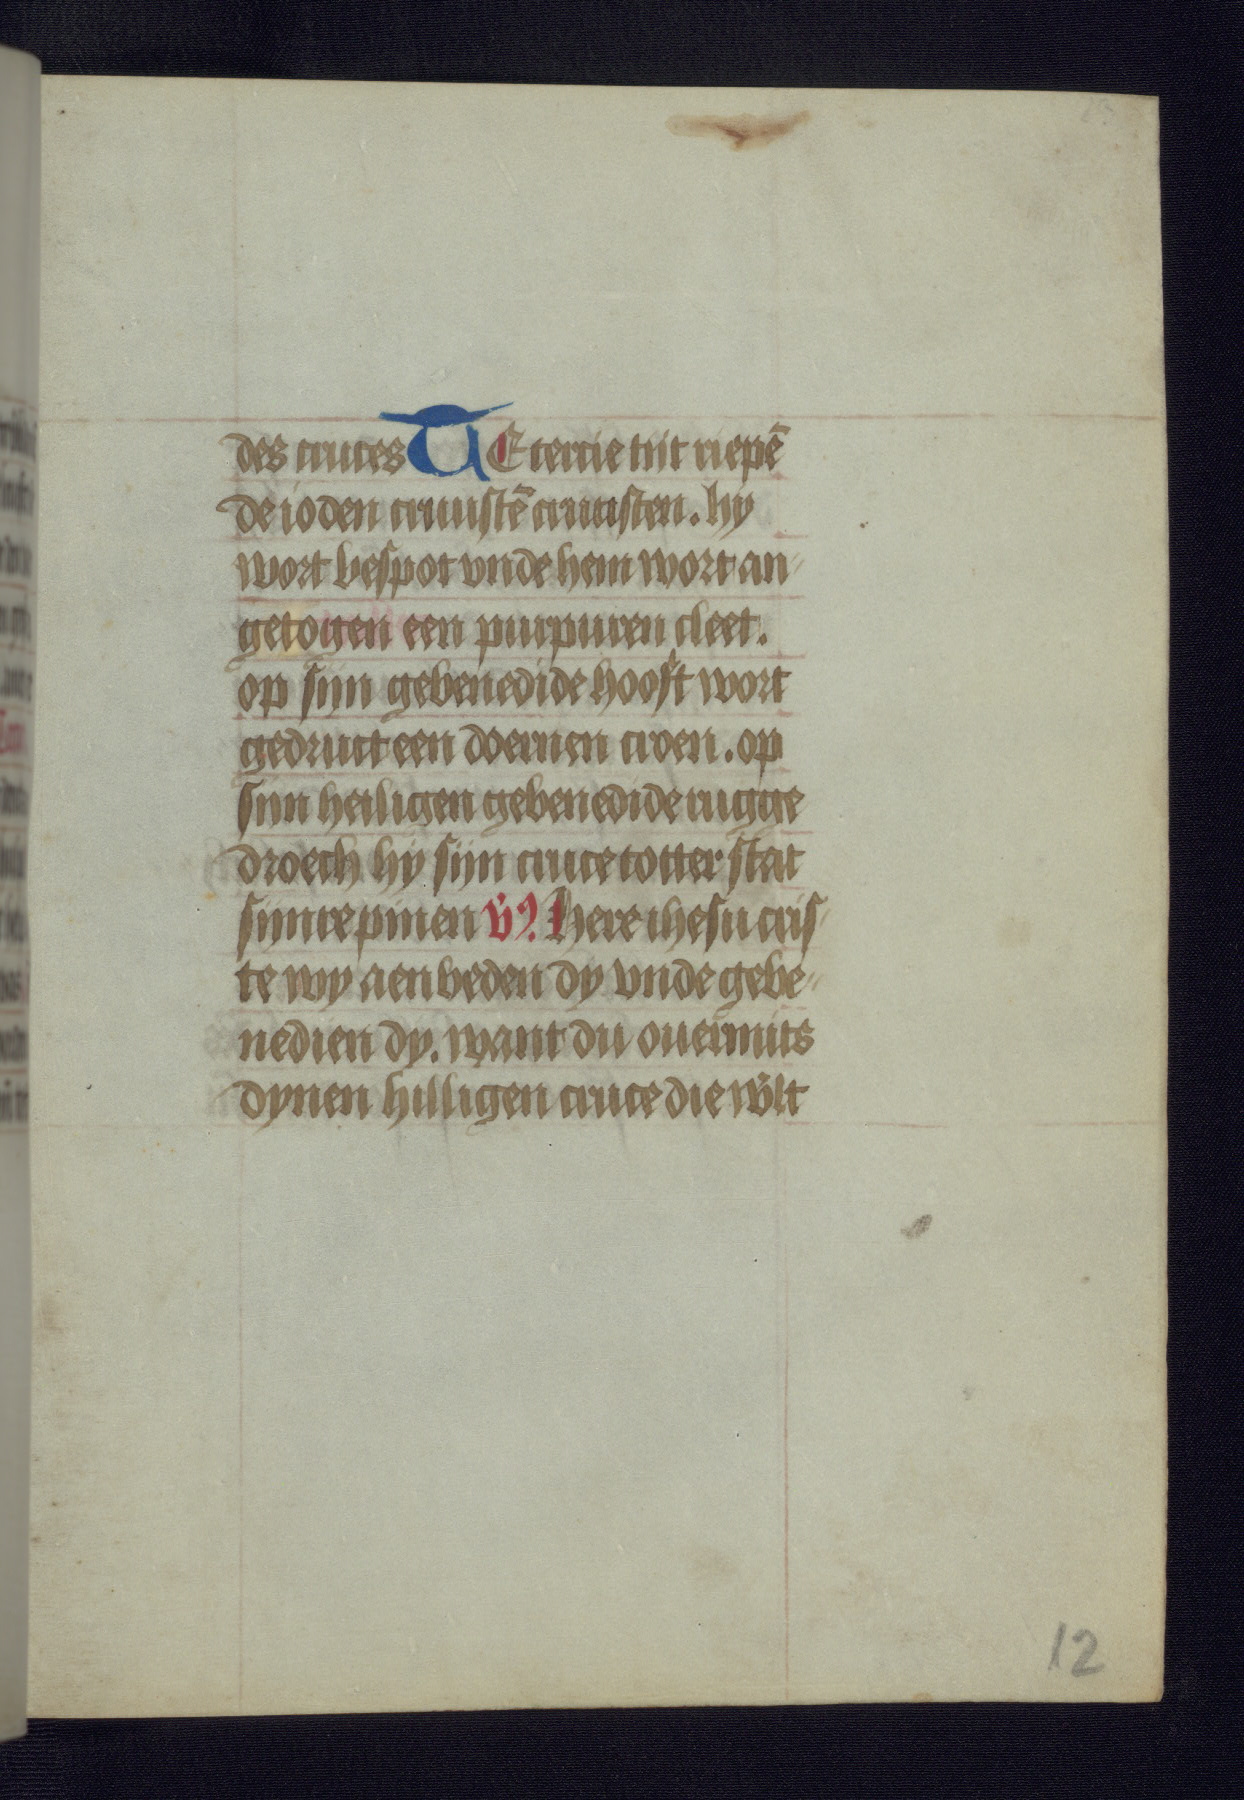 des cruces TE tercie tijt riepē
de ioden crucistē crucisten. hy
wort bespot vnde hem wort an
getogen een purpuren cleet.
op sijn gebenedide hooft wort
gedruct een doernen croen. op
sijn heiligen gebenedide rugge
droech hy sijn cruce totter stat
sijnre pinen v̄. Here ihesu cris
te wy aenbeden dy vnde gebe
nedien dy. want du ouermits
dynen hilligen cruce die w̄lt
12